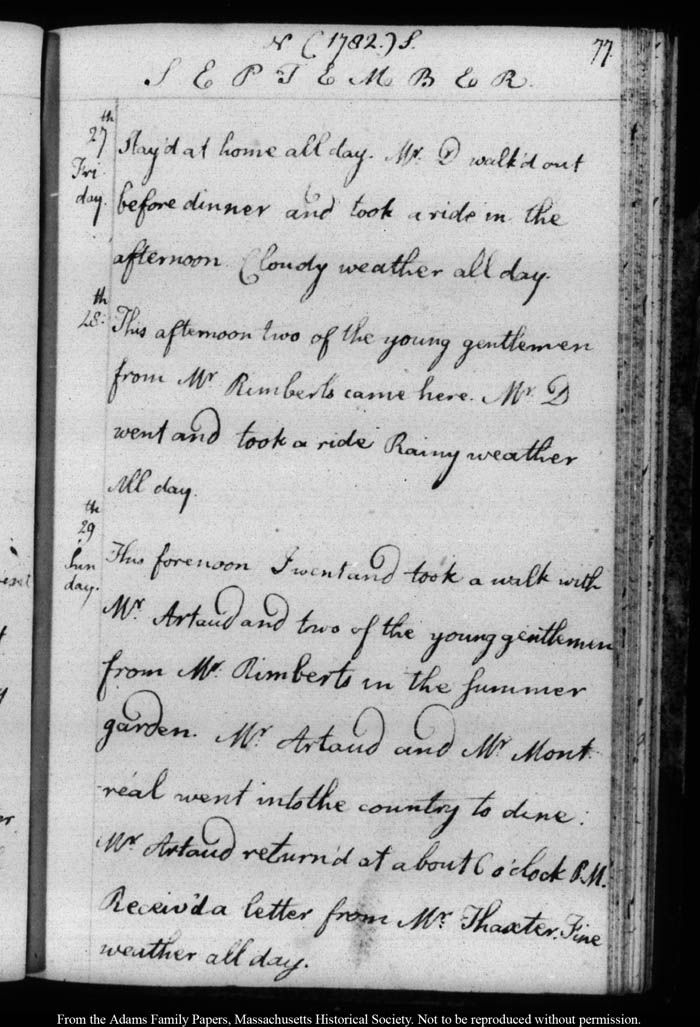 N (1782.) S.
77.
S E P T E M B E R.
27th Fri day.
Stay'd at home all day. Mr. D walk'd out
before dinner and took a ride in the
afternoon. Cloudy weather all day.
28th.
This afternoon two of the young gentlemen
from Mr Rimberts came here. Mr. D
went and took a ride Rainy weather
All day.
29th Sun day.
This forenoon I went and took a walk with
Mr. Artaud and two of the young gentlemen
from Mr. Rimberts in the summer
garden. Mr. Artaud and Mr Mont
réal went into the country to dine.
Mr Artaud return'd at about 6 o'clock P.M.
Receiv'd a letter from Mr. Thaxter. Fine
weather all day.
From the Adams Family Papers, Massachusetts Historical Society. Not to be reproduced without permission.